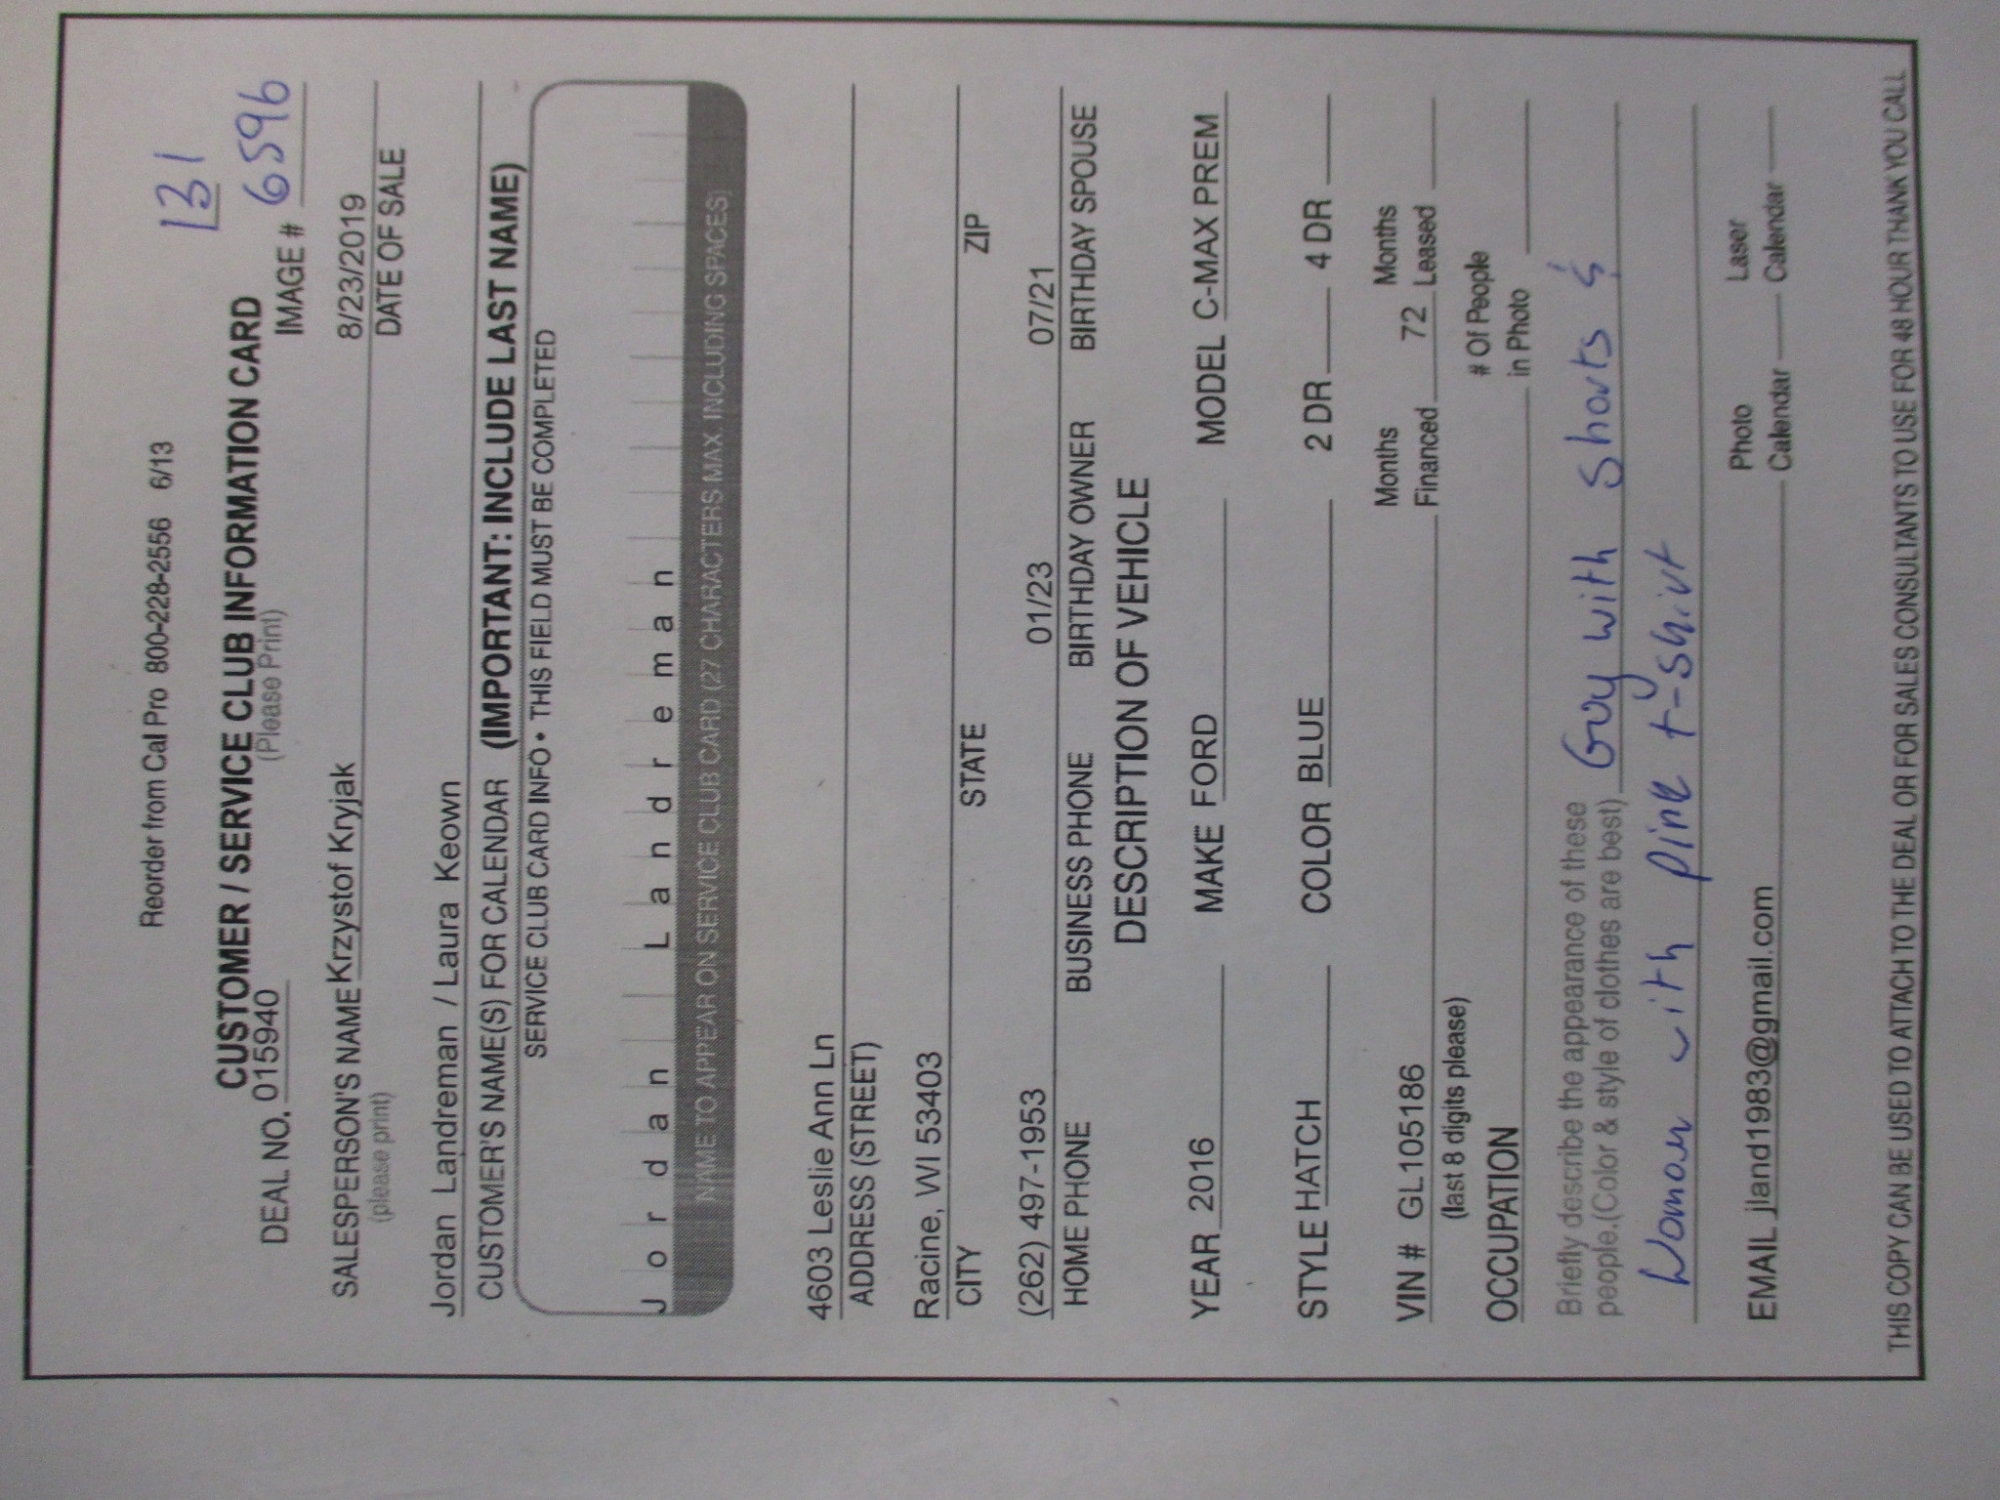 Reorder from Cal Pro 800-228-2556 6/13
131
CUSTOMER / SERVICE CLUB INFORMATION CARD
(Please Print)
DEAL NO. 015940 IMAGE # 6596
SALESPERSON'S NAME Krzystof Kryjak 8/23/2019
(please print) DATE OF SALE
Jordan Landreman / Laura Keown
CUSTOMER'S NAME(S) FOR CALENDAR (IMPORTANT: INCLUDE LAST NAME)
SERVICE CLUB CARD INFO • THIS FIELD MUST BE COMPLETED
Jordan Landreman
NAME TO APPEAR ON SERVICE CLUB CARD (27 CHARACTERS MAX. INCLUDING SPACES)
4603 Leslie Ann Ln
ADDRESS (STREET)
Racine, WI 53403
CITY STATE ZIP
(262) 497-1953 01/23 07/21
HOME PHONE BUSINESS PHONE BIRTHDAY OWNER BIRTHDAY SPOUSE
DESCRIPTION OF VEHICLE
YEAR 2016 MAKE FORD MODEL C-MAX PREM
STYLE HATCH COLOR BLUE 2 DR 4 DR
Months Months
VIN # GL105186 Financed 72 Leased
(last 8 digits please)
# Of People
OCCUPATION in Photo
Briefly describe the appearance of these
people.(Color & style of clothes are best) Guy with shorts &
Woman with pink t-shirt
Photo Laser
EMAIL jland1983@gmail.com Calendar Calendar
THIS COPY CAN BE USED TO ATTACH TO THE DEAL OR FOR SALES CONSULTANTS TO USE FOR 48 HOUR THANK YOU CALL